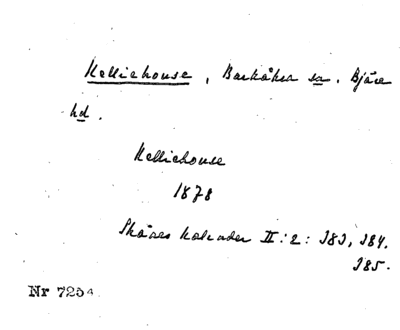 Kelliehouse, Barkåkra sn. Bjäre
hd.
Kelliehouse
1878
Skånes kalender II:2: 383, 384.
385.
Nr 7254